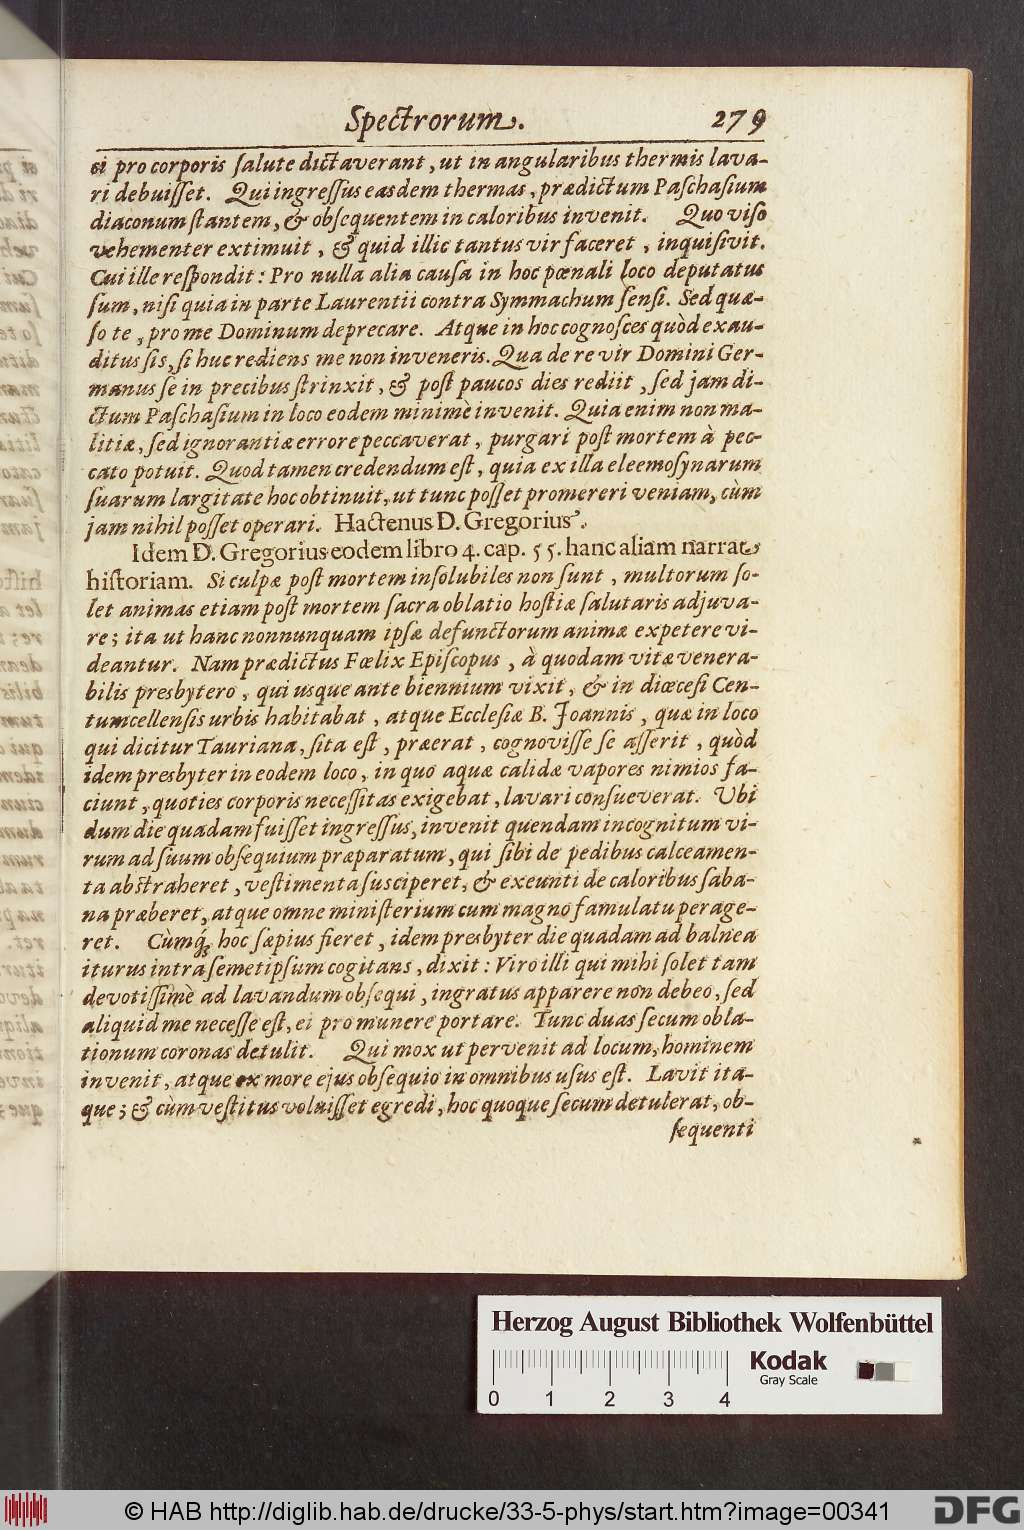 Spectrorum. 279
ei pro corporis ſalute dictaverant, ut in angularibus thermis lava-
ri debuiſſet. Qui ingreſſus easdem thermas, prædictum Paſchaſium
diaconum ſtantem, & obſequentem in caloribus invenit. Quo viſo
vehementer extimuit, & quid illic tantus vir faceret, inquiſivit.
Cui ille reſpondit: Pro nulla alia cauſa in hoc pœnali loco deputatus
ſum, niſi quia in parte Laurentii contra Symmachum ſenſi. Sed quæ-
ſo te, pro me Dominum deprecare. Atque in hoc cognoſces quòd exau-
ditus ſis, ſi huc rediens me non inveneris. Qua de re vir Domini Ger-
manus ſe in precibus ſtrinxit, & poſt paucos dies rediit, ſed jam di-
ctum Paſchaſium in loco eodem minimè invenit. Quia enim non ma-
litiæ, ſed ignorantiæ errore peccaverat, purgari poſt mortem à pec-
cato potuit. Quod tamen credendum eſt, quia ex illa eleemoſynarum
ſuarum largitate hoc obtinuit, ut tunc poſſet promereri veniam, cùm
jam nihil poſſet operari. Hactenus D. Gregorius.
Idem D. Gregorius eodem libro 4. cap. 55. hanc aliam narrat
hiſtoriam. Si culpæ poſt mortem inſolubiles non ſunt, multorum ſo-
let animas etiam poſt mortem ſacra oblatio hoſtiæ ſalutaris adjuva-
re; ita ut hanc nonnunquam ipſæ defunctorum animæ expetere vi-
deantur. Nam prædictus Fœlix Epiſcopus, à quodam vitæ venera-
bilis presbytero, qui usque ante biennium vixit, & in diœceſi Cen-
tumcellenſis urbis habitabat, atque Eccleſiæ B. Joannis, quæ in loco
qui dicitur Tauriana, ſita eſt, præerat, cognoviſſe ſe aſſerit, quòd
idem presbyter in eodem loco, in quo aquæ calidæ vapores nimios fa-
ciunt, quoties corporis neceſſitas exigebat, lavari conſueverat. Ubi
dum die quadam fuiſſet ingreſſus, invenit quendam incognitum vi-
rum ad ſuum obſequium præparatum, qui ſibi de pedibus calceamen-
ta abſtraheret, veſtimenta ſusciperet, & exeunti de caloribus ſaba-
na præberet, atque omne miniſterium cum magno famulatu perage-
ret. Cùmq́; hoc ſæpius fieret, idem presbyter die quadam ad balnea
iturus intra ſemetipſum cogitans, dixit: Viro illi qui mihi ſolet tam
devotiſſimè ad lavandum obſequi, ingratus apparere non debeo, ſed
aliquid me neceſſe eſt, ei pro munere portare. Tunc duas ſecum obla-
tionum coronas detulit. Qui mox ut pervenit ad locum, hominem
invenit, atque ex more ejus obſequio in omnibus uſus eſt. Lavit ita-
que; & cùm veſtitus voluiſſet egredi, hoc quoque ſecum detulerat, ob-
ſequenti
Herzog August Bibliothek Wolfenbüttel
Kodak
Gray Scale
0 1 2 3 4
© HAB http://diglib.hab.de/drucke/33-5-phys/start.htm?image=00341
DFG